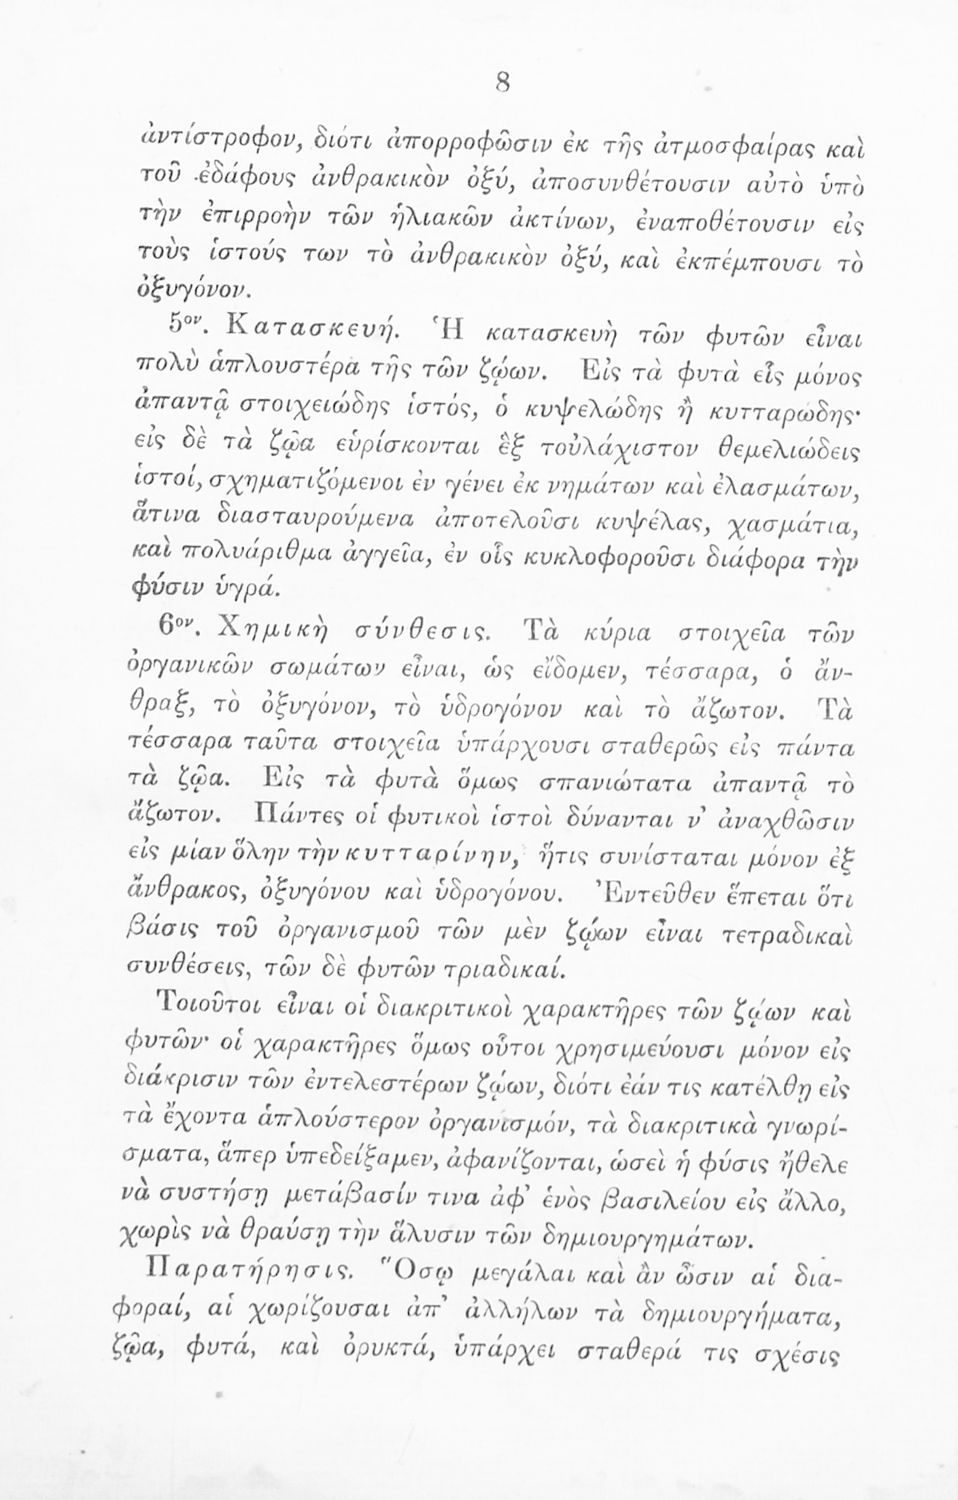 8
ἀντίστροφον, διότι ἀπορροφῶσιν ἐκ τῆς ἀτμοσφαίρας καὶ
τοῦ ἐδάφους ἀνθρακικὸν ὀξύ, ἀποσυνθέτουσιν αὐτὸ ὑπὸ
τὴν ἐπιρροὴν τῶν ἡλιακῶν ἀκτίνων, ἐναποθέτουσιν εἰς
τοὺς ἱστούς των τὸ ἀνθρακικὸν ὀξύ, καὶ ἐκπέμπουσι τὸ
ὀξυγόνον.
5ον. Κατασκευή. Ἡ κατασκευὴ τῶν φυτῶν εἶναι
πολὺ ἁπλουστέρα τῆς τῶν ζῴων. Εἰς τὰ φυτὰ εἷς μόνος
ἀπαντᾷ στοιχειώδης ἱστός, ὁ κυψελώδης ἢ κυτταρώδης·
εἰς δὲ τὰ ζῷα εὑρίσκονται ἓξ τοὐλάχιστον θεμελιώδεις
ἱστοί, σχηματιζόμενοι ἐν γένει ἐκ νημάτων καὶ ἐλασμάτων,
ἅτινα διασταυρούμενα ἀποτελοῦσι κυψέλας, χασμάτια,
καὶ πολυάριθμα ἀγγεῖα, ἐν οἷς κυκλοφοροῦσι διάφορα τὴν
φύσιν ὑγρά.
6ον. Χημικὴ σύνθεσις. Τὰ κύρια στοιχεῖα τῶν
ὀργανικῶν σωμάτων εἶναι, ὡς εἴδομεν, τέσσαρα, ὁ ἄν-
θραξ, τὸ ὀξυγόνον, τὸ ὑδρογόνον καὶ τὸ ἄζωτον. Τὰ
τέσσαρα ταῦτα στοιχεῖα ὑπάρχουσι σταθερῶς εἰς πάντα
τὰ ζῷα. Εἰς τὰ φυτὰ ὅμως σπανιώτατα ἀπαντᾷ τὸ
ἄζωτον. Πάντες οἱ φυτικοὶ ἱστοὶ δύνανται ν’ ἀναχθῶσιν
εἰς μίαν ὅλην τὴν κυτταρίνην, ἥτις συνίσταται μόνον ἐξ
ἄνθρακος, ὀξυγόνου καὶ ὑδρογόνου. Ἐντεῦθεν ἕπεται ὅτι
βάσις τοῦ ὀργανισμοῦ τῶν μὲν ζῴων εἶναι τετραδικαὶ
συνθέσεις, τῶν δὲ φυτῶν τριαδικαί.
Τοιοῦτοι εἶναι οἱ διακριτικοὶ χαρακτῆρες τῶν ζῴων καὶ
φυτῶν· οἱ χαρακτῆρες ὅμως οὗτοι χρησιμεύουσι μόνον εἰς
διάκρισιν τῶν ἐντελεστέρων ζῴων, διότι ἐάν τις κατέλθῃ εἰς
τὰ ἔχοντα ἁπλούστερον ὀργανισμόν, τὰ διακριτικὰ γνωρί-
σματα, ἅπερ ὑπεδείξαμεν, ἀφανίζονται, ὡσεὶ ἡ φύσις ἤθελε
νὰ συστήσῃ μετάβασίν τινα ἀφ’ ἑνὸς βασιλείου εἰς ἄλλο,
χωρὶς νὰ θραύσῃ τὴν ἅλυσιν τῶν δημιουργημάτων.
Παρατήρησις. Ὅσῳ μεγάλαι καὶ ἂν ὦσιν αἱ δια-
φοραί, αἱ χωρίζουσαι ἀπ’ ἀλλήλων τὰ δημιουργήματα,
ζῷα, φυτά, καὶ ὀρυκτά, ὑπάρχει σταθερά τις σχέσις